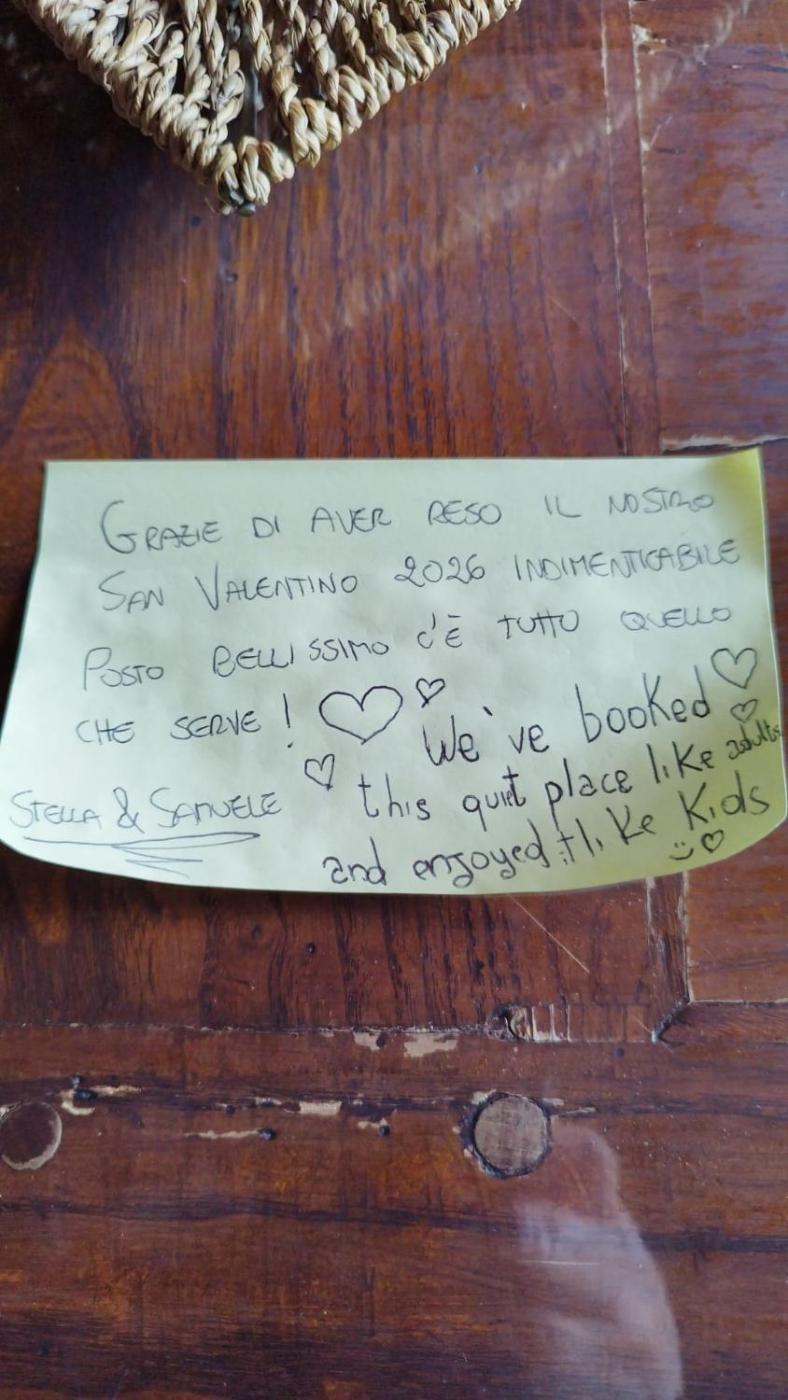 GRAZIE DI AVER RESO IL NOSTRO
SAN VALENTINO 2026 INDIMENTICABILE
POSTO BELLISSIMO C'È TUTTO QUELLO
CHE SERVE!
STELLA & SAMUELE
We've booked
this quiet place like adults
and enjoyed it like Kids